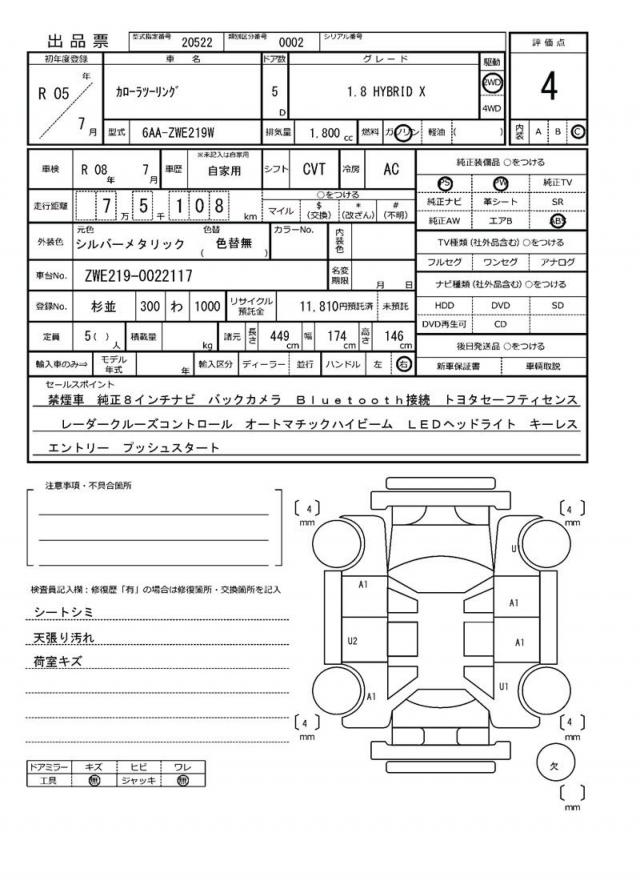 出品票 型式指定番号 20522 類別区分番号 0002 シリアル番号
評価点
4
内装 A B C
初年度登録 車名 ドア数 グレード 駆動
R 05 年 7 月
カローラツーリング 5 D 1.8 HYBRID X 2WD 4WD
型式 6AA-ZWE219W 排気量 1.800 cc 燃料 ガソリン 軽油 ( )
車検 R 08 年 7 月 車歴 ※未記入は自家用 自家用 シフト CVT 冷房 AC
走行距離 7 万 5 千 1 0 8 km
○をつける
マイル $ (交換) * (改ざん) # (不明)
外装色 元色 シルバーメタリック 色替 ( 色替無 ) カラーNo. 内装色
車台No. ZWE219-0022117 名変期限 月 日
登録No. 杉並 300 わ 1000 リサイクル預託金 11,810円預託済 未預託
定員 5( ) 人 積載量 kg 諸元 長さ 449 cm 幅 174 cm 高さ 146 cm
輸入車のみ⇒ モデル年式 年 輸入区分 ディーラー 並行 ハンドル 左 右
純正装備品 ○をつける
PS PW 純正TV
純正ナビ 革シート SR
純正AW エアB ABS
TV種類(社外品含む) ○をつける
フルセグ ワンセグ アナログ
ナビ種類(社外品含む) ○をつける
HDD DVD SD
DVD再生可 CD
後日発送品 ○をつける
新車保証書 車輌取説
セールスポイント
禁煙車 純正8インチナビ バックカメラ Bluetooth接続 トヨタセーフティセンス
レーダークルーズコントロール オートマチックハイビーム LEDヘッドライト キーレス
エントリー プッシュスタート
注意事項・不具合箇所
検査員記入欄:修復歴「有」の場合は修復箇所・交換箇所を記入
シートシミ
天張り汚れ
荷室キズ
ドアミラー キズ ヒビ ワレ
工具 無 ジャッキ 無
[ 4 ] mm
[ 4 ] mm
U1
A1
A1
U2
A1
A1
U1
[ 4 ] mm
[ 4 ] mm
欠
[ ] mm